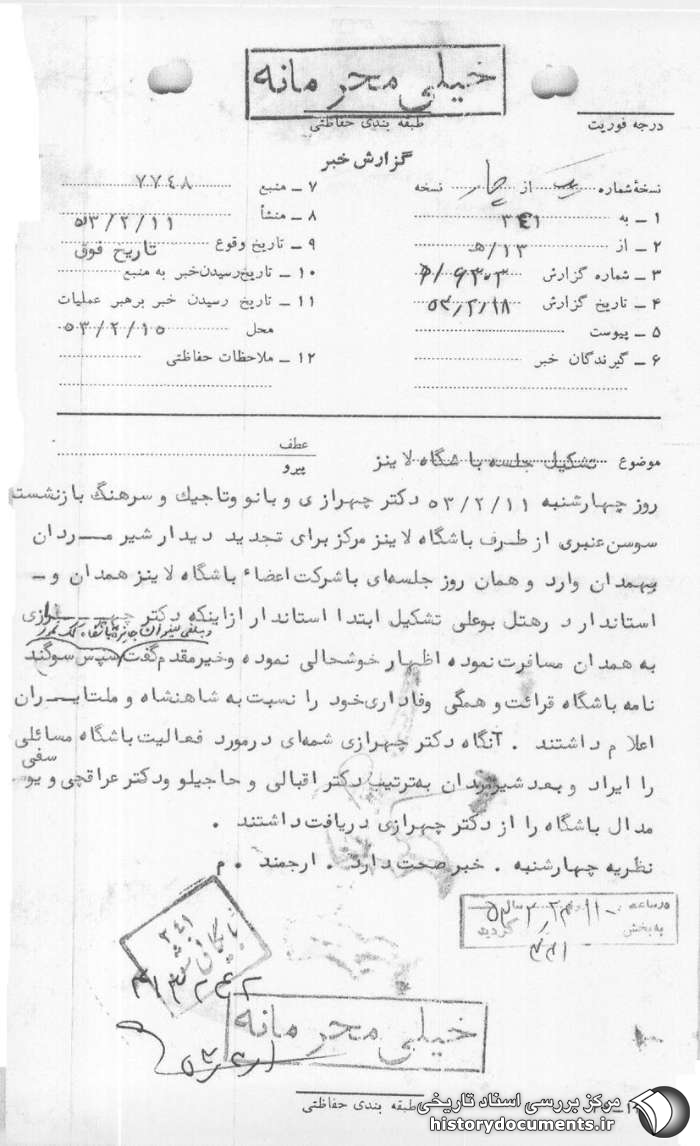 خیلی محرمانه
طبقه بندی حفاظتی
درجه فوریت
گزارش خبر
نسخهٔ شماره یک از چهار نسخه
۱ ـ به ۳۴۱
۲ ـ از ۱۳/هـ
۳ ـ شماره گزارش
۴ ـ تاریخ گزارش ۵۳/۲/۱۸
۵ ـ پیوست
۶ ـ گیرندگان خبر
۷ ـ منبع ۷۷۴۸
۸ ـ منشأ ۵۳/۲/۱۱
۹ ـ تاریخ وقوع تاریخ فوق
۱۰ ـ تاریخ رسیدن خبر به منبع
۱۱ ـ تاریخ رسیدن خبر برهبر عملیات
محل ۵۳/۲/۱۵
۱۲ ـ ملاحظات حفاظتی
موضوع تشکیل جلسه باشگاه لاینز
عطف
پیرو
روز چهارشنبه ۵۳/۲/۱۱ دکتر چهرازی و بانو وتاجیک و سرهنگ بازنشسته
سوسن عنبری از طرف باشگاه لاینز مرکز برای تجدید دیدار شیر مردان
بهمدان وارد و همان روز جلسه‌ای باشرکت اعضاء باشگاه لاینز همدان و ـ
استاندار در هتل بوعلی تشکیل ابتدا استاندار ازاینکه دکتر چهرازی
به همدان مسافرت نموده اظهار خوشحالی نموده وخیرمقدم گفت سپس سوگند
نامه باشگاه قرائت و همگی وفاداری خود را نسبت به شاهنشاه و ملت ایران
اعلام داشتند . آنگاه دکتر چهرازی شمه‌ای درمورد فعالیت باشگاه مسائلی
را ایراد و بعد شیرمردان به‌ترتیب دکتر اقبالی و حاجیلو ودکتر عراقچی و یوسفی
مدال باشگاه را از دکتر چهرازی دریافت داشتند .
نظریه چهارشنبه . خبر صحت دارد . ارجمند . م
در ساعت ۱۱۰۰ روز سال
به بخش ۳۴۱ گردید
بایگانی شد
۳۴۱
۴۱۳۲۶۲
خیلی محرمانه
طبقه بندی حفاظتی
مرکز بررسی اسناد تاریخی
historydocuments.ir